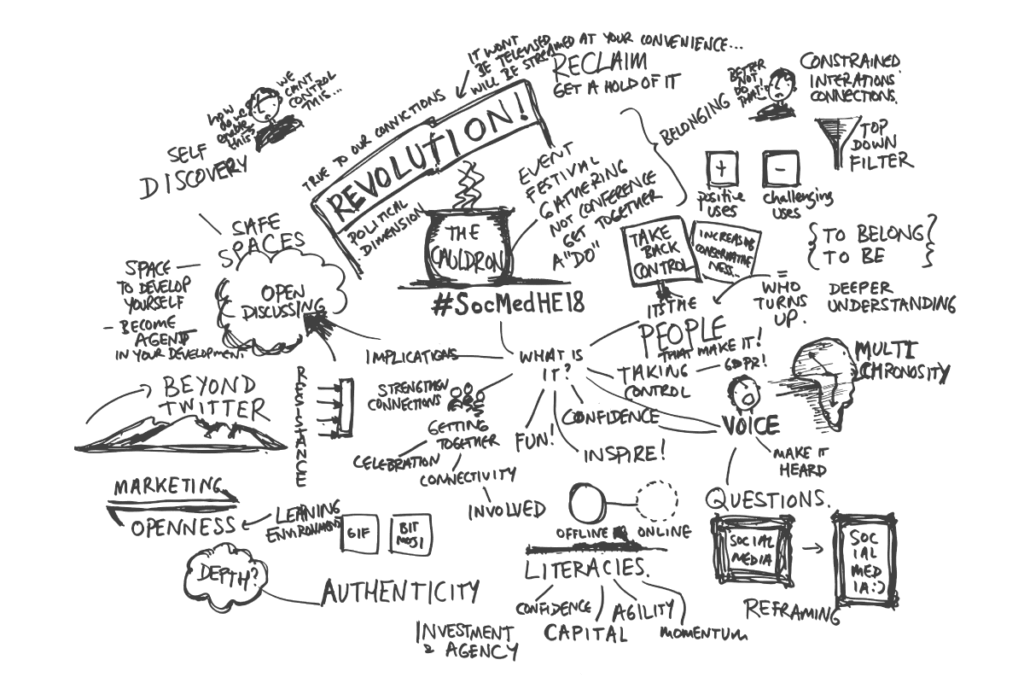 IT WONT
BE TELEVISED
WILL BE STREAMED AT YOUR CONVENIENCE...
RECLAIM
GET A HOLD OF IT
TRUE TO OUR CONVICTIONS
REVOLUTION!
POLITICAL
DIMENSION
EVENT
FESTIVAL
GATHERING
NOT CONFERENCE
GET TOGETHER
A "DO"
THE
CAULDRON
#SocMedHE18
HOW
DO WE
ENABLE
THIS
WE
CANT
CONTROL
THIS...
SELF
DISCOVERY
SAFE
SPACES
OPEN
DISCUSSING
SPACE
TO DEVELOP
YOURSELF
- BECOME
AGENT
IN YOUR DEVELOPMENT
BELONGING
BETTER
NOT
DO
THAT
CONSTRAINED
CONNECTIONS.
TOP
DOWN
FILTER
+
positive
uses
-
challenging
uses
{TO BELONG}
{TO BE}
DEEPER
UNDERSTANDING
TAKE
BACK
CONTROL
INCREASING
NESS...
=
WHO
TURNS
UP.
ITS THE
PEOPLE
THAT MAKE IT!
GDPR!
TAKING
CONTROL
MULTI
CHRONOSITY
VOICE
MAKE IT
HEARD
QUESTIONS.
SOCIAL
MEDIA
SOC
IAL
MED
IA:)
REFRAMING
WHAT IS
IT?
IMPLICATIONS
STRENGTHEN
CONNECTIONS
GETTING
TOGETHER
CELEBRATION
CONNECTIVITY
INVOLVED
FUN!
CONFIDENCE
INSPIRE!
RESISTANCE
BEYOND
TWITTER
MARKETING
OPENNESS
LEARNING
ENVIRONMENT
GIF
BIT
MOJI
DEPTH?
AUTHENTICITY
OFFLINE
ONLINE
LITERACIES.
CONFIDENCE
CAPITAL
AGILITY
MOMENTUM
INVESTMENT
& AGENCY